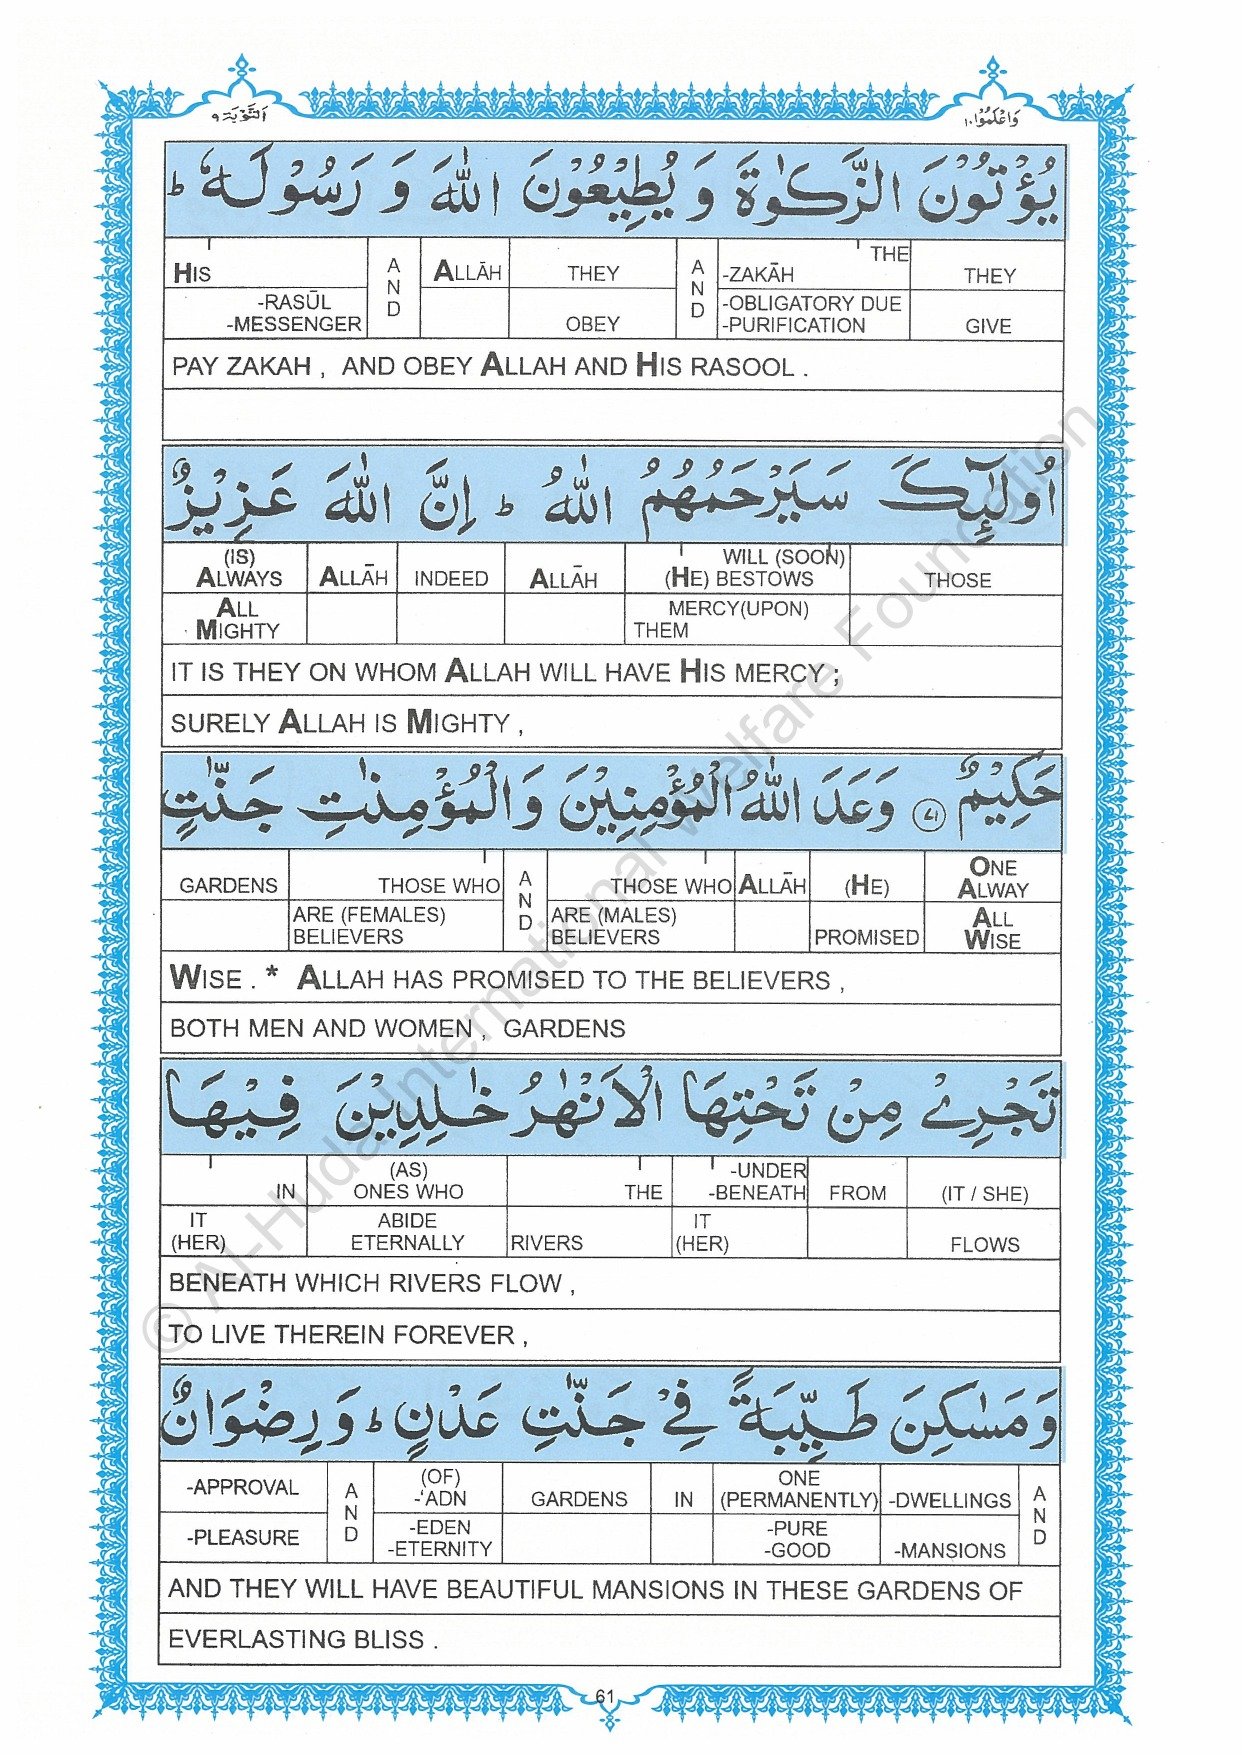 التَّوْبَة ٩
وَاعْلَمُوْا ١٠
يُؤْتُوْنَ الزَّكٰوةَ وَ يُطِيْعُوْنَ اللّٰهَ وَ رَسُوْلَهٗ ؕ
HIS
-RASŪL
-MESSENGER
AND
ALLĀH
THEY
OBEY
AND
THE
-ZAKĀH
-OBLIGATORY DUE
-PURIFICATION
THEY
GIVE
PAY ZAKAH , AND OBEY ALLAH AND HIS RASOOL .
اُولٰٓئِكَ سَيَرْحَمُهُمُ اللّٰهُ ؕ اِنَّ اللّٰهَ عَزِيْزٌ
(IS)
ALWAYS
ALL
MIGHTY
ALLĀH
INDEED
ALLĀH
WILL (SOON)
(HE) BESTOWS
MERCY(UPON)
THEM
THOSE
IT IS THEY ON WHOM ALLAH WILL HAVE HIS MERCY ;
SURELY ALLAH IS MIGHTY ,
حَكِيْمٌ ٧١ وَعَدَ اللّٰهُ الْمُؤْمِنِيْنَ وَالْمُؤْمِنٰتِ جَنّٰتٍ
GARDENS
THOSE WHO
ARE (FEMALES)
BELIEVERS
AND
THOSE WHO
ARE (MALES)
BELIEVERS
ALLĀH
(HE)
PROMISED
ONE
ALWAY
ALL
WISE
WISE . * ALLAH HAS PROMISED TO THE BELIEVERS ,
BOTH MEN AND WOMEN , GARDENS
تَجْرِيْ مِنْ تَحْتِهَا الْاَنْهٰرُ خٰلِدِيْنَ فِيْهَا
IN
IT
(HER)
(AS)
ONES WHO
ABIDE
ETERNALLY
THE
RIVERS
-UNDER
-BENEATH
IT
(HER)
FROM
(IT / SHE)
FLOWS
BENEATH WHICH RIVERS FLOW ,
TO LIVE THEREIN FOREVER ,
وَ مَسٰكِنَ طَيِّبَةً فِيْ جَنّٰتِ عَدْنٍ ؕ وَ رِضْوَانٌ
-APPROVAL
-PLEASURE
AND
(OF)
-'ADN
-EDEN
-ETERNITY
GARDENS
IN
ONE
(PERMANENTLY)
-PURE
-GOOD
-DWELLINGS
-MANSIONS
AND
AND THEY WILL HAVE BEAUTIFUL MANSIONS IN THESE GARDENS OF
EVERLASTING BLISS .
61
© Al-Huda International Welfare Foundation